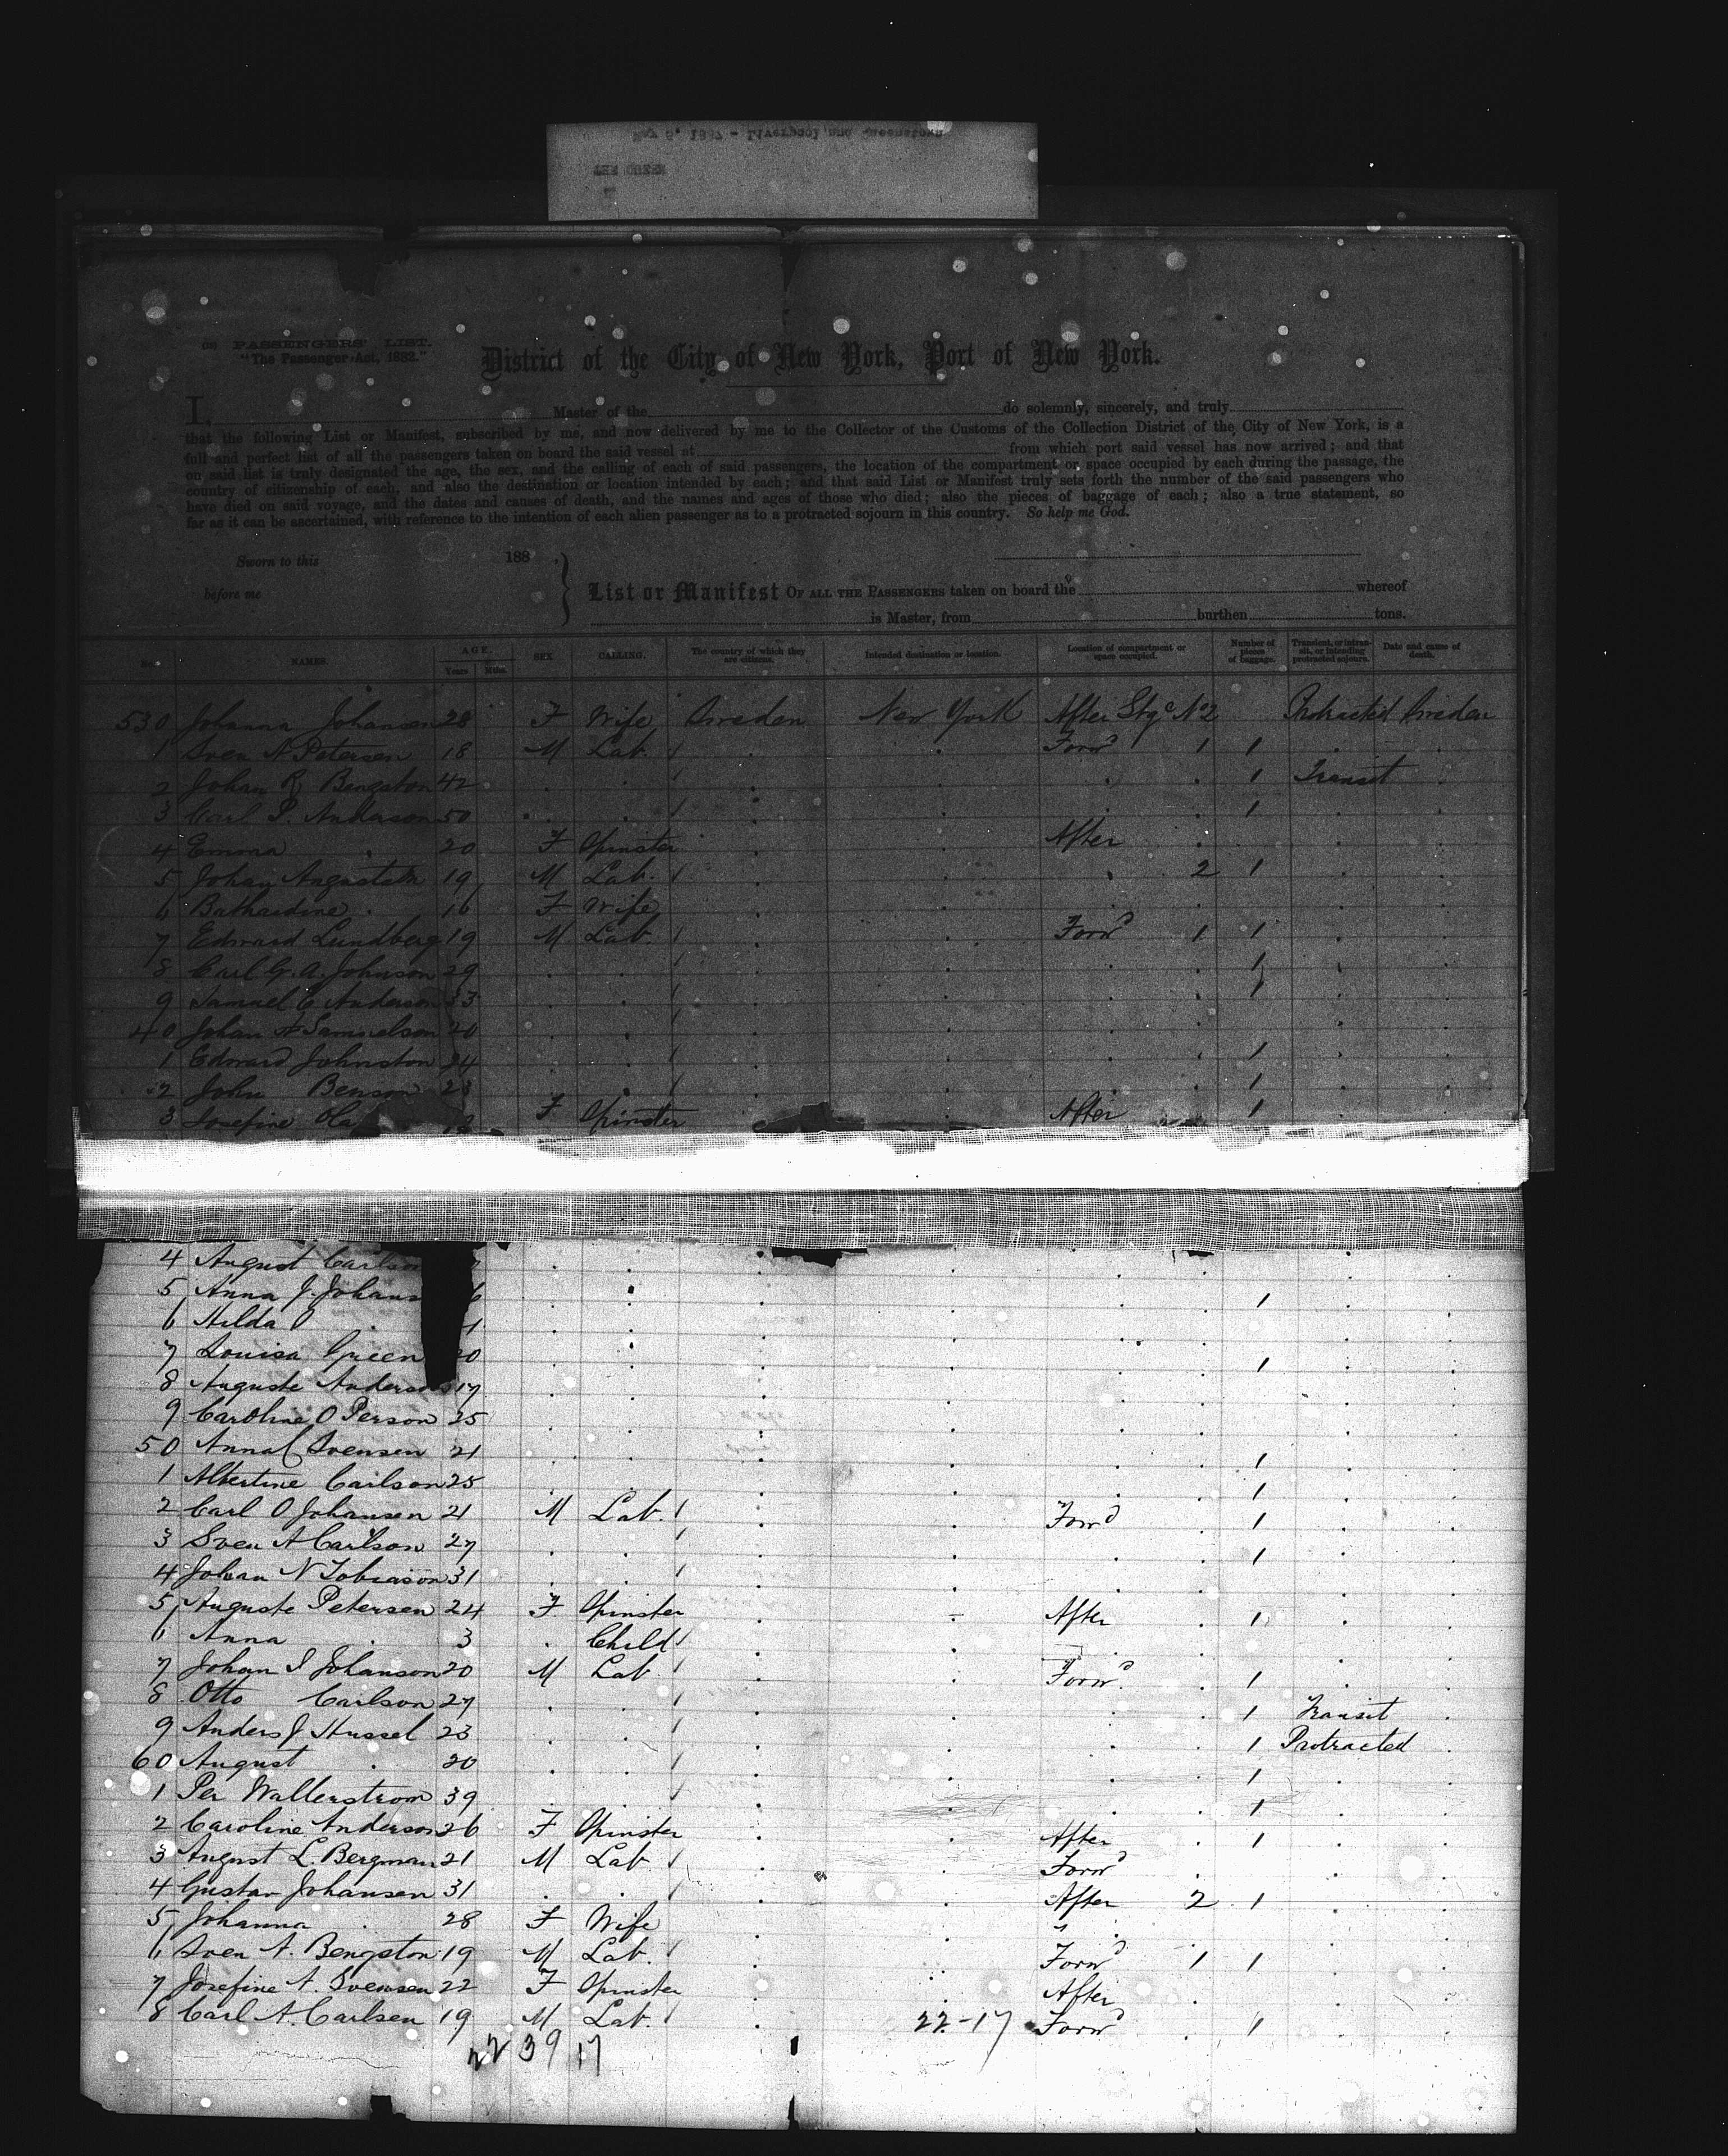 May 5, 1887 - Liverpool and Queenstown
THE QUEEN
PASSENGERS' LIST.
"The Passenger Act, 1882."
District of the City of New York, Port of New York.
I, Master of the do solemnly, sincerely, and truly
that the following List or Manifest, subscribed by me, and now delivered by me to the Collector of the Customs of the Collection District of the City of New York, is a
full and perfect list of all the passengers taken on board the said vessel at from which port said vessel has now arrived; and that
on said list is truly designated the age, the sex, and the calling of each of said passengers, the location of the compartment or space occupied by each during the passage, the
country of citizenship of each, and also the destination or location intended by each; and that said List or Manifest truly sets forth the number of the said passengers who
have died on said voyage, and the dates and causes of death, and the names and ages of those who died; also the pieces of baggage of each; also a true statement, so
far as it can be ascertained, with reference to the intention of each alien passenger as to a protracted sojourn in this country. So help me God.
Sworn to this 188 .
before me
List or Manifest OF ALL THE PASSENGERS taken on board the whereof
is Master, from burthen tons.
No. NAMES. AGE. Years Mths. SEX. CALLING. The country of which they are citizens. Intended destination or location. Location of compartment or space occupied. Number of pieces of baggage. Transient, or in transit, or intending protracted sojourn. Date and cause of death.
530 Johanna Johansen 28 F Wife Sweden New York After Stge No 2 Protracted Sweden
1 Sven A Petersen 18 M Lab. / Forwd 1 1
2 Johan R Bengston 42 / 1 Transit
3 Carl P. Anderson 50 / 1
4 Emma . 20 F Spinster After
5 Johan 19 M Lab. / 2 1
6 . 16 F Wife
7 Edward Lundberg 19 M Lab. / Forwd 1 1
8 Carl G. A. Johnson 29 / 1
9 Samuel C Anderson 33 / 1
40 Johan A Samuelson 20 /
1 Edward Johnston 24 / 1
2 John Benson 23 / 1
3 Josefine Ola F Spinster After 1
4 August Carlson
5 Anna J. Johans 6 1
6 Hilda O . 1
7 Louisa Green 20 1
8 Auguste Anderson 17
9 Caroline O Person 25
50 Anna C Svensen 21 1
1 Albertine Carlson 25 1
2 Carl O Johansen 21 M Lab. / Forwd 1
3 Sven A Carlson 27 / 1
4 Johan N Tobiason 31 /
5 Auguste Petersen 24 F Spinster After 1
6 Anna . 3 Child /
7 Johan I Johanson 20 M Lab / Forwd 1
8 Otto Carlson 27 / 1 Transit
9 Anders J Hussel 23 / 1 Protracted
60 August . 20 / 1
1 Per Wallerstrom 39 / 1
2 Caroline Anderson 26 F Spinster After 1
3 August L. Bergman 21 M Lab / Forwd
4 Gustav Johansen 31 / After 2 1
5 Johanna . 28 F Wife "
6 Sven A. Bengston 19 M Lab / Forwd 1 1
7 Josefine A. Svensen 22 F Spinster After
8 Carl A. Carlsen 19 M Lab. / 22-17 Forwd 1
22 39 17